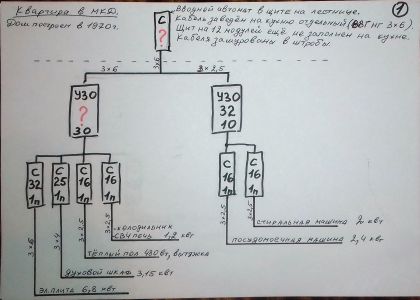 Квартира в МКД.
Дом построен в 1970г.
Вводной автомат в щите на лестнице.
Кабель заведён на кухню отдельный (ВВГнг 3×6).
Щит на 12 модулей ещё не заполнен на кухне.
Кабеля зашурованы в штробы.
1
С
?
3×6
3×6
3×2,5
УЗО
?
30
УЗО
32
10
С
32
1п
С
25
1п
С
16
1п
С
16
1п
С
16
1п
С
16
1п
3×6
3×4
3×2,5
3×2,5
3×2,5
3×2,5
холодильник
СВЧ печь 1,2 квт
тёплый пол 430 вт, вытяжка
духовой шкаф 3,15 квт
эл.плита 6,8 квт
стиральная машина 2 квт
посудомоечная машина 2,4 квт